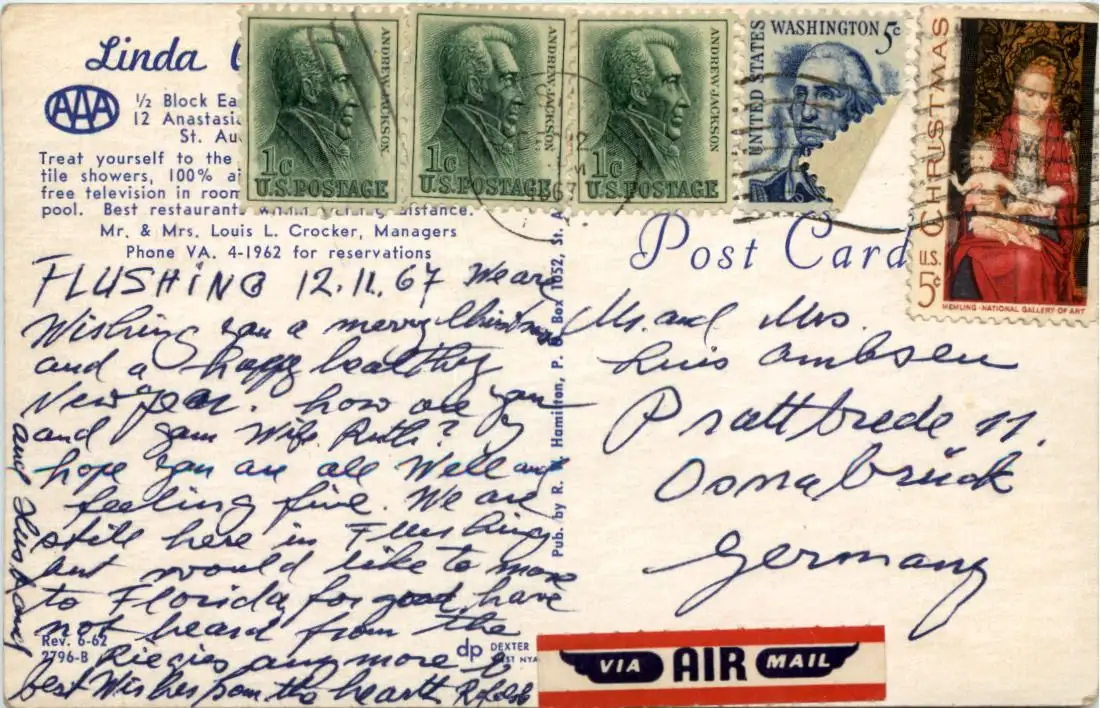 Linda
AAA
½ Block Ea
12 Anastasi
St. Au
Treat yourself to the
tile showers, 100% ai
free television in room
pool. Best restaurants within distance.
Mr. & Mrs. Louis L. Crocker, Managers
Phone VA. 4-1962 for reservations
FLUSHING 12.11.67 We are
Wishing you a merry Christmas
and a happy healthy
New Year. how are you
and your Wife Ruth? I
hope you are all Well and
feeling fine. We are
still here in Flushing
but would like to move
to Florida for good, have
not heard from the
any more
best Wishes from the heart
and Husband
Rev. 6-62
2796-B
dp DEXTER
WEST NYA
Pub. by R. Hamilton, P. O. Box 1052, St. A
ANDREW JACKSON
1c
U.S. POSTAGE
ANDREW JACKSON
1c
U.S. POSTAGE
ANDREW JACKSON
1c
U.S. POSTAGE
WASHINGTON 5c
UNITED STATES
CHRISTMAS
U.S.
5c
MEMLING-NATIONAL GALLERY OF ART
12
M
1967
Post Card
Mr. and Mrs.
Luis Ambsen
Prattbrede 11.
Osnabrück
Germany
VIA AIR MAIL